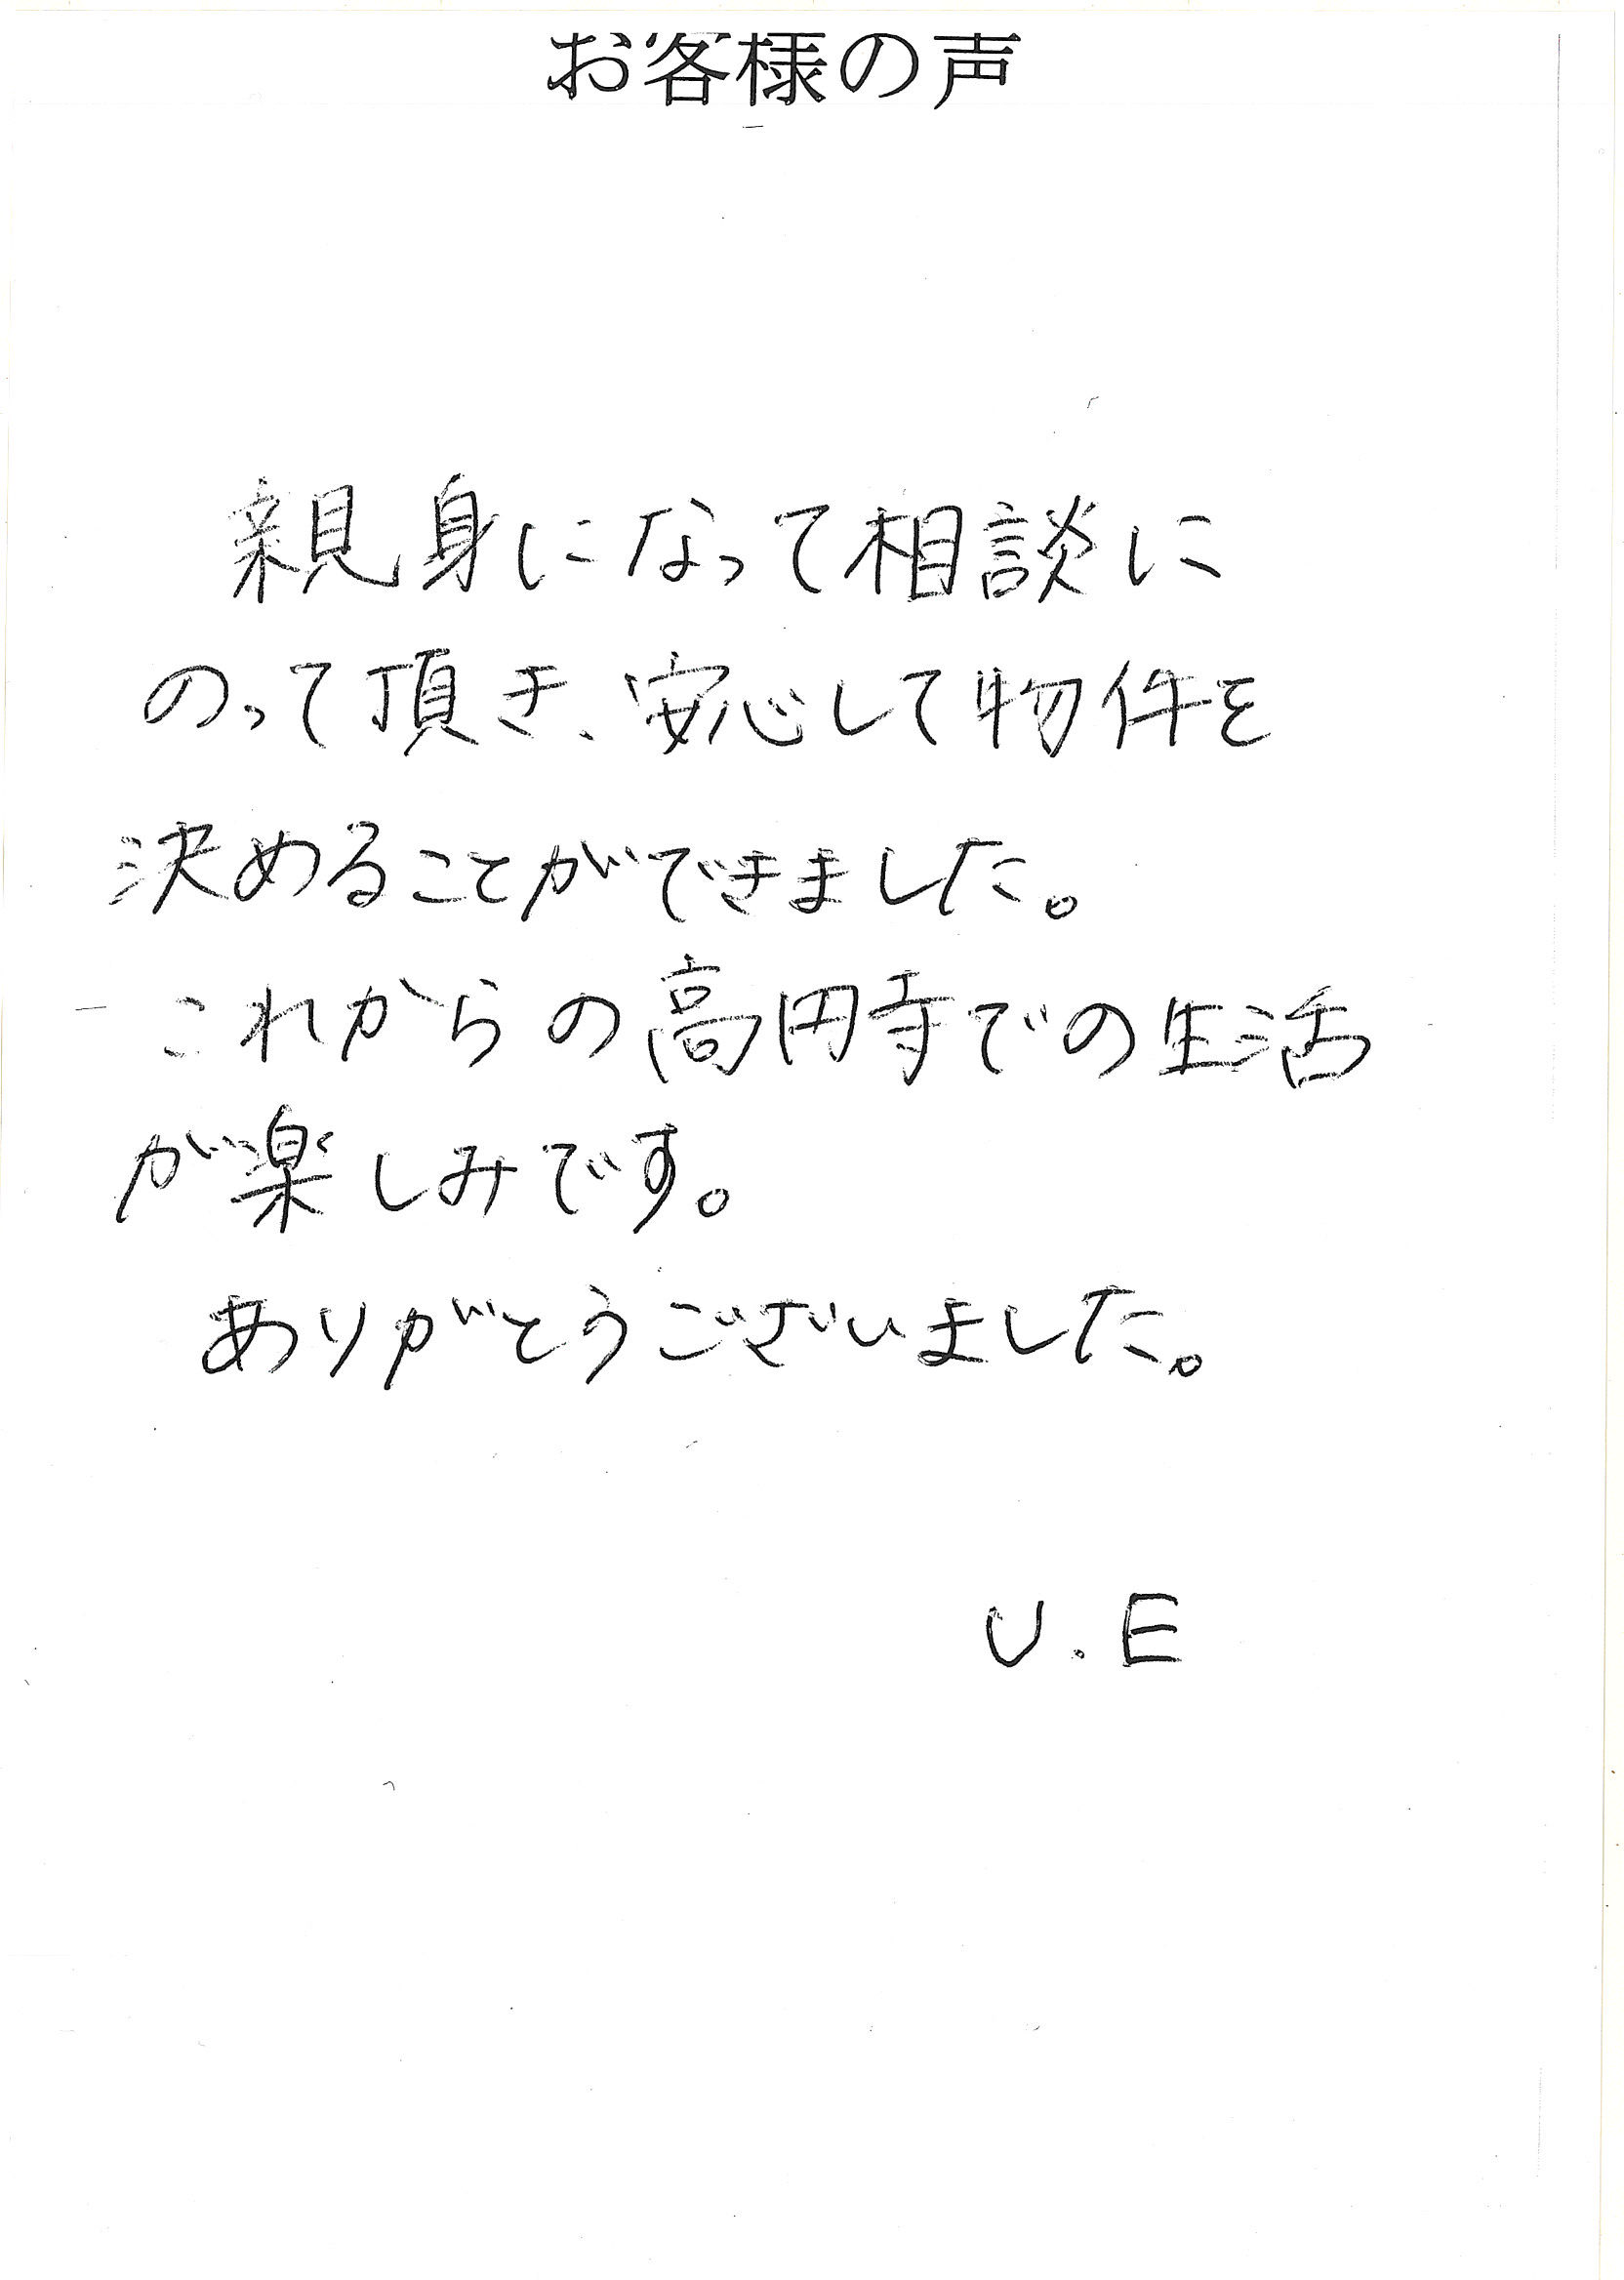 お客様の声
親身になって相談に
のって頂き、安心して物件を
決めることができました。
これからの高円寺での生活
が楽しみです。
ありがとうございました。
U.E